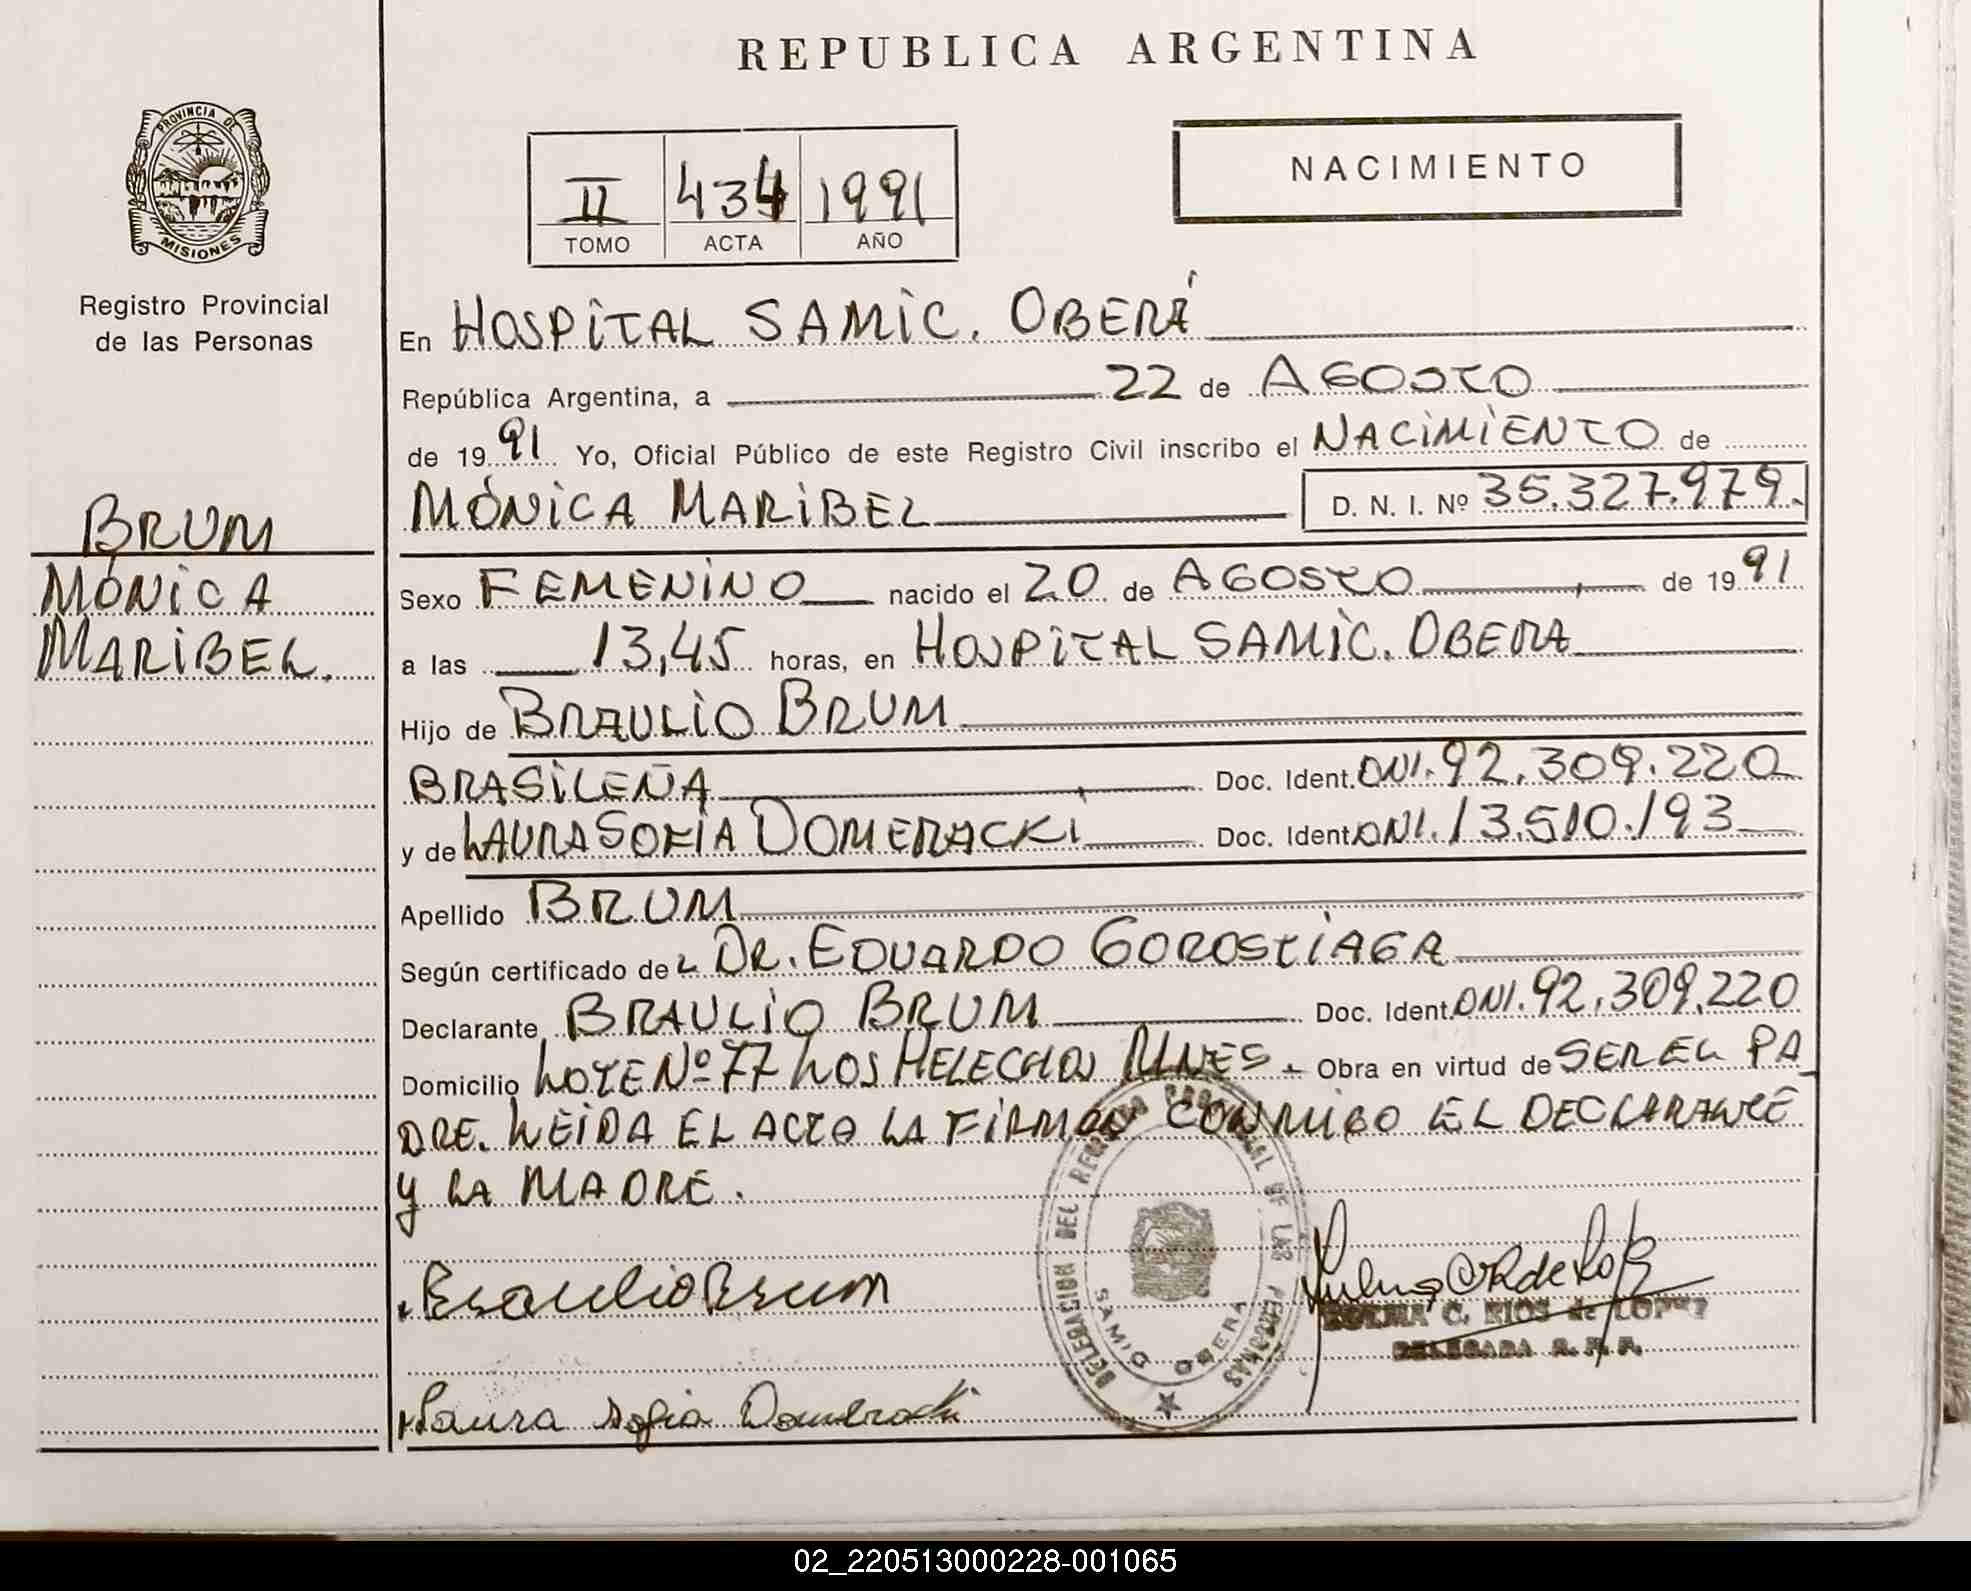 REPUBLICA ARGENTINA
PROVINCIA DE
MISIONES
Registro Provincial
de las Personas
II 434 1991
TOMO ACTA AÑO
NACIMIENTO
BRUM
MÓNICA
MARIBEL.
En HOSPITAL SAMIC. OBERÁ
República Argentina, a 22 de AGOSTO
de 1991 Yo, Oficial Público de este Registro Civil inscribo el NACIMIENTO de
MÓNICA MARIBEL D. N. I. Nº 35.327.979.
Sexo FEMENINO nacido el 20 de AGOSTO de 1991
a las 13,45 horas, en HOSPITAL SAMIC. OBERA
Hijo de BRAULIO BRUM
BRASILEÑA Doc. Ident. DNI. 92.309.220
y de LAURA SOFIA DOMERACKI Doc. Ident DNI. 13.510.193
Apellido BRUM
Según certificado de L DR. EDUARDO GOROSTIAGA
Declarante BRAULIO BRUM Doc. Ident. DNI. 92.309.220
Domicilio LOTE Nº 77 LOS HELECHOS MNES - Obra en virtud de SER EL PA
DRE. LEIDA EL ACTA LA FIRMAN CONMIGO EL DECLARANTE
Y LA MADRE.
DELEGACION DEL REGISTRO PROVINCIAL DE LAS PERSONAS
SAMIC OBERA
Braulio Brum
ZULMA C. RIOS de LOPEZ
DELEGADA R. P. P.
Laura Sofia Domeracki
02_220513000228-001065